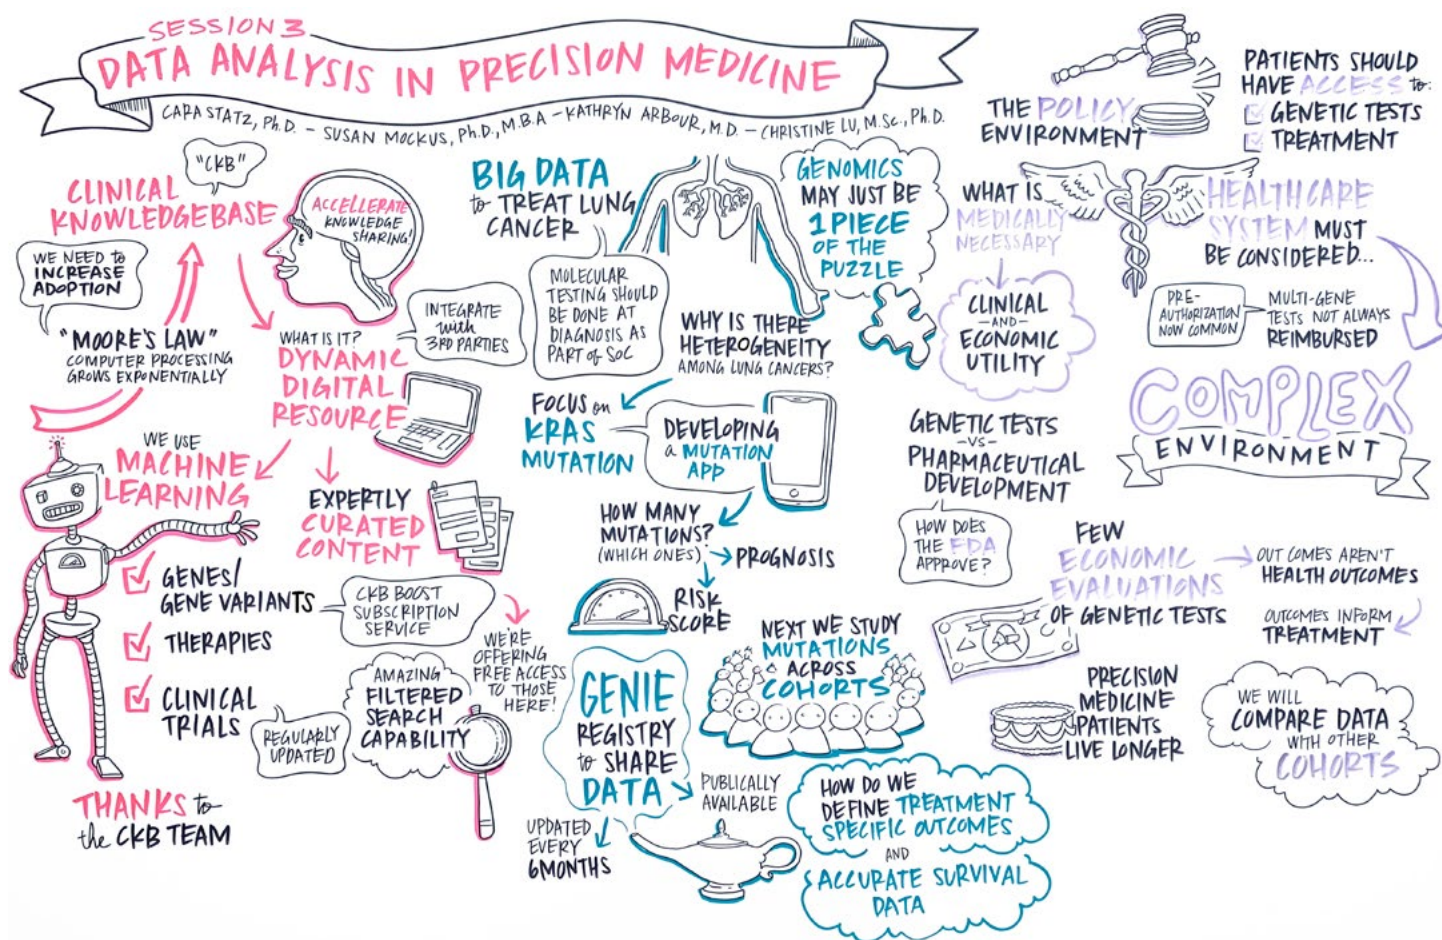 SESSION 3
DATA ANALYSIS IN PRECISION MEDICINE
CARA STATZ, Ph.D. – SUSAN MOCKUS, Ph.D., M.B.A – KATHRYN ARBOUR, M.D. – CHRISTINE LU, M.Sc., Ph.D.
"CKB"
CLINICAL
KNOWLEDGEBASE
ACCELLERATE
KNOWLEDGE
SHARING!
WE NEED to
INCREASE
ADOPTION
"MOORE'S LAW"
COMPUTER PROCESSING
GROWS EXPONENTIALLY
WHAT IS IT?
DYNAMIC
DIGITAL
RESOURCE
INTEGRATE
with
3RD PARTIES
WE USE
MACHINE
LEARNING
EXPERTLY
CURATED
CONTENT
GENES/
GENE VARIANTS
THERAPIES
CLINICAL
TRIALS
CKB BOOST
SUBSCRIPTION
SERVICE
WE'RE
OFFERING
FREE ACCESS
TO THOSE
HERE!
AMAZING
FILTERED
SEARCH
CAPABILITY
REGULARLY
UPDATED
THANKS to
the CKB TEAM
BIG DATA
to TREAT LUNG
CANCER
MOLECULAR
TESTING SHOULD
BE DONE AT
DIAGNOSIS AS
PART of SOC
GENOMICS
MAY JUST BE
1 PIECE
OF THE
PUZZLE
WHY IS THERE
HETEROGENEITY
AMONG LUNG CANCERS?
FOCUS on
KRAS
MUTATION
DEVELOPING
a MUTATION
APP
HOW MANY
MUTATIONS?
(WHICH ONES)
PROGNOSIS
RISK
SCORE
NEXT WE STUDY
MUTATIONS
ACROSS
COHORTS
GENIE
REGISTRY
to SHARE
DATA
PUBLICALLY
AVAILABLE
UPDATED
EVERY
6 MONTHS
HOW DO WE
DEFINE TREATMENT
SPECIFIC OUTCOMES
AND
ACCURATE SURVIVAL
DATA
THE POLICY
ENVIRONMENT
PATIENTS SHOULD
HAVE ACCESS to:
GENETIC TESTS
TREATMENT
WHAT IS
MEDICALLY
NECESSARY
CLINICAL
—AND—
ECONOMIC
UTILITY
HEALTHCARE
SYSTEM MUST
BE CONSIDERED...
PRE-
AUTHORIZATION
NOW COMMON
MULTI-GENE
TESTS NOT ALWAYS
REIMBURSED
COMPLEX
ENVIRONMENT
GENETIC TESTS
-VS-
PHARMACEUTICAL
DEVELOPMENT
HOW DOES
THE FDA
APPROVE?
FEW
ECONOMIC
EVALUATIONS
OF GENETIC TESTS
OUTCOMES AREN'T
HEALTH OUTCOMES
OUTCOMES INFORM
TREATMENT
PRECISION
MEDICINE
PATIENTS
LIVE LONGER
WE WILL
COMPARE DATA
WITH OTHER
COHORTS